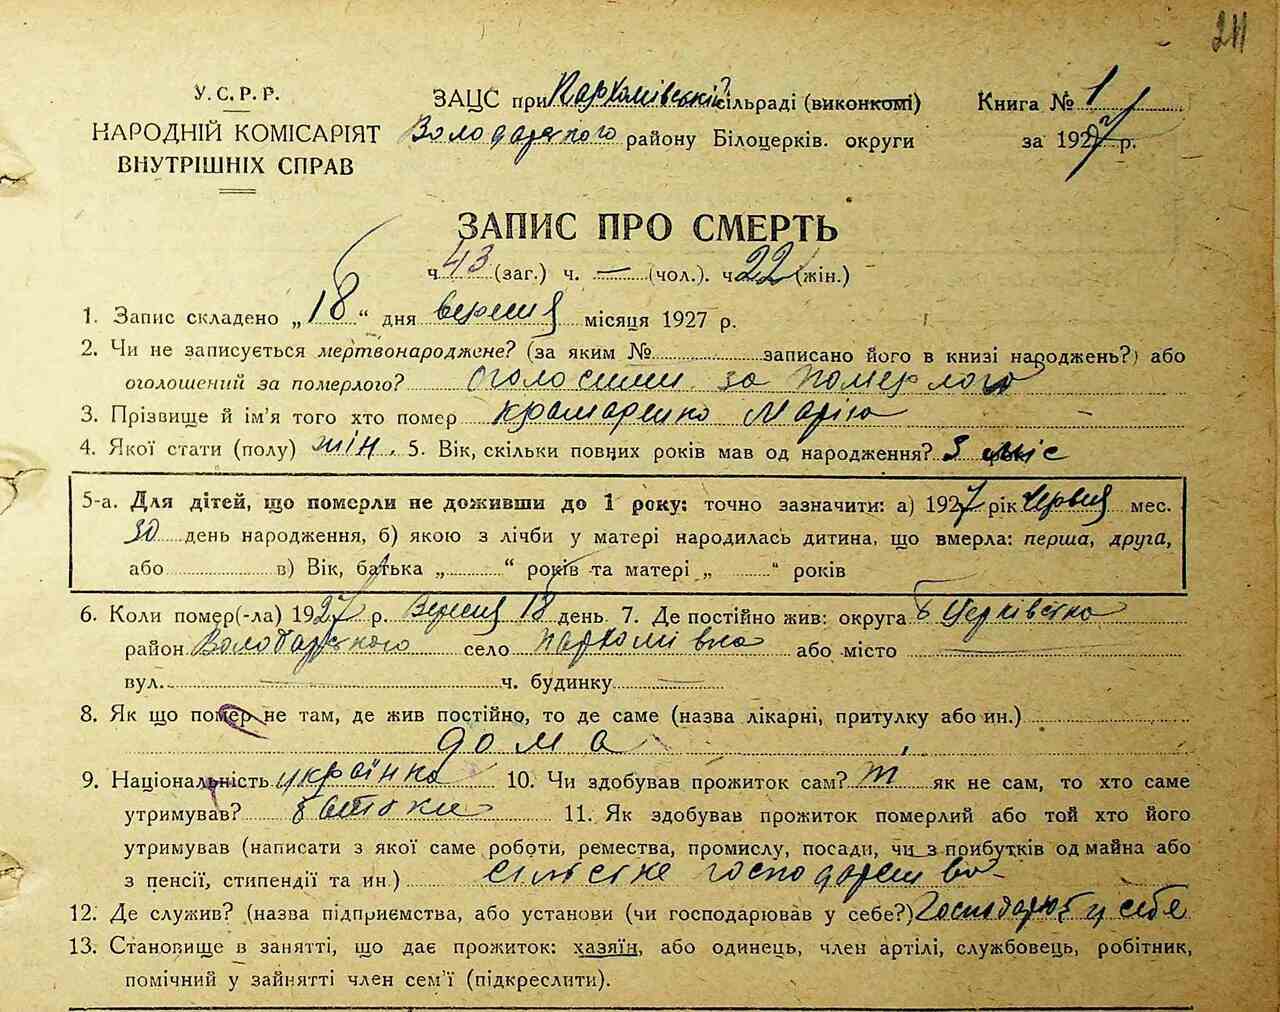 211
У.С.Р.Р.
НАРОДНІЙ КОМІСАРІЯТ
ВНУТРІШНІХ СПРАВ
ЗАЦС при Пархомівській сільраді (виконкомі)
Володарского району Білоцерків. округи
Книга № 1
за 1927 р.
ЗАПИС ПРО СМЕРТЬ
ч. 43 (заг.) ч. — (чол.). ч. 22 (жін.)
1. Запис складено „18“ дня вересня місяця 1927 р.
2. Чи не записується мертвонароджене? (за яким № записано його в книзі народжень?) або
оголошений за померлого? оголосити за померлого
3. Прізвище й ім'я того хто помер Крамаренко Марія
4. Якої стати (полу) жін. 5. Вік, скільки повних років мав од народження? 3 міс
5-а. Для дітей, що померли не доживши до 1 року: точно зазначити: а) 1927 рік червня мес.
30 день народження, б) якою з лічби у матері народилась дитина, що вмерла: перша, друга,
або в) Вік, батька „ “ років та матері „ “ років
6. Коли помер(-ла) 1927 р. Вересня 18 день 7. Де постійно жив: округа Б Церківська
район Володарського село Пархомівка або місто —
вул. — ч. будинку —
8. Як що помер не там, де жив постійно, то де саме (назва лікарні, притулку або ин.)
дома
9. Національність українка 10. Чи здобував прожиток сам? як не сам, то хто саме
утримував? батьки 11. Як здобував прожиток померлий або той хто його
утримував (написати з якої саме роботи, ремества, промислу, посади, чи з прибутків од майна або
з пенсії, стипендії та ин.) сільське господарство
12. Де служив? (назва підприємства, або установи (чи господарював у себе?) Господарює у себе
13. Становище в занятті, що дає прожиток: хазяїн, або одинець, член артілі, службовець, робітник,
помічний у зайнятті член сем'ї (підкреслити).